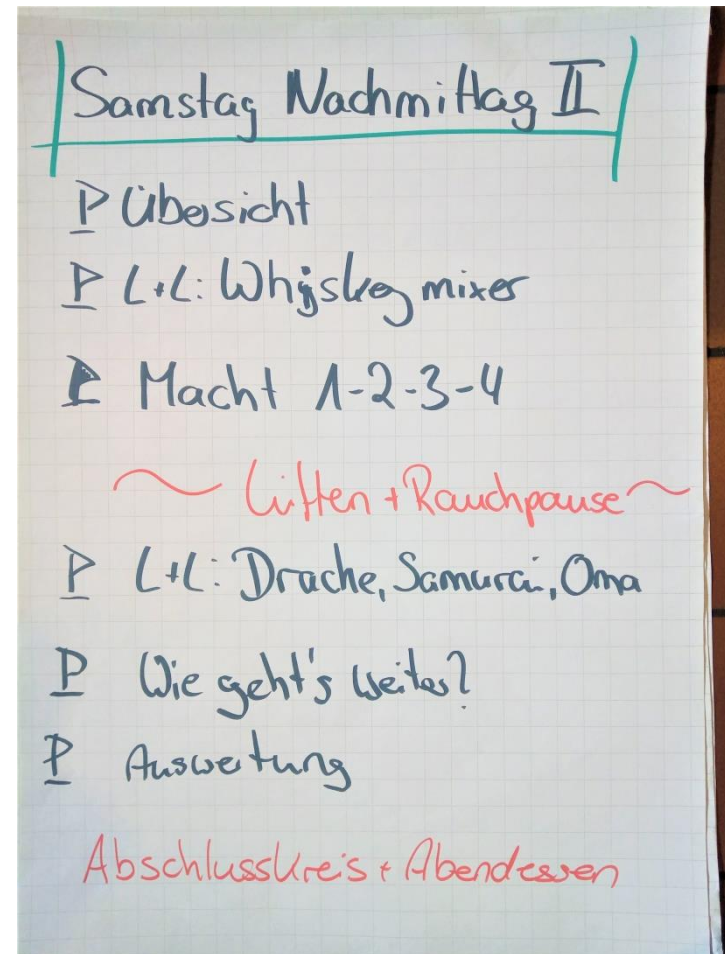 Samstag Nachmittag II
P Übersicht
P L+L: Whiskeymixer
P Macht 1-2-3-4
~ Lüften + Rauchpause ~
P L+L: Drache, Samurai, Oma
P Wie geht's weiter?
P Auswertung
Abschlusskreis + Abendessen